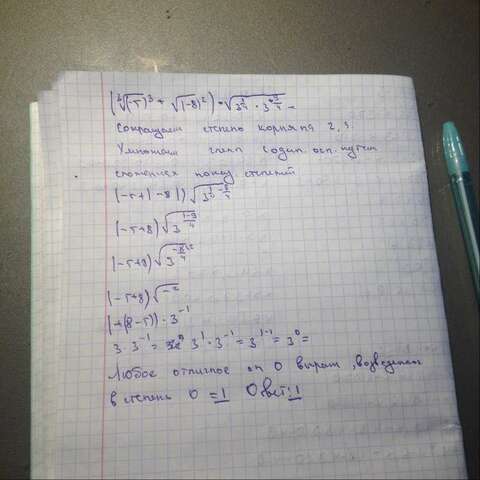 (∛(-5)³ + √(-8)²) · √(3^(1/4) · 3^(-9/4)) =
Сокращаем степень корня на 2, 3.
Умножаем член с один. осн. путем
сложения показ. степеней
(-5+|-8|) √(3^(1/4 - 9/4))
(-5+8) √(3^((1-9)/4))
(-5+8) √(3^(-8/4))
(-5+8) √
(+(8-5)) · 3^-1
3 · 3^-1 = 3^1 · 3^-1 = 3^(1-1) = 3^0 =
Любое отличное от 0 выраж, возведенное
в степень 0 = 1 Ответ: 1